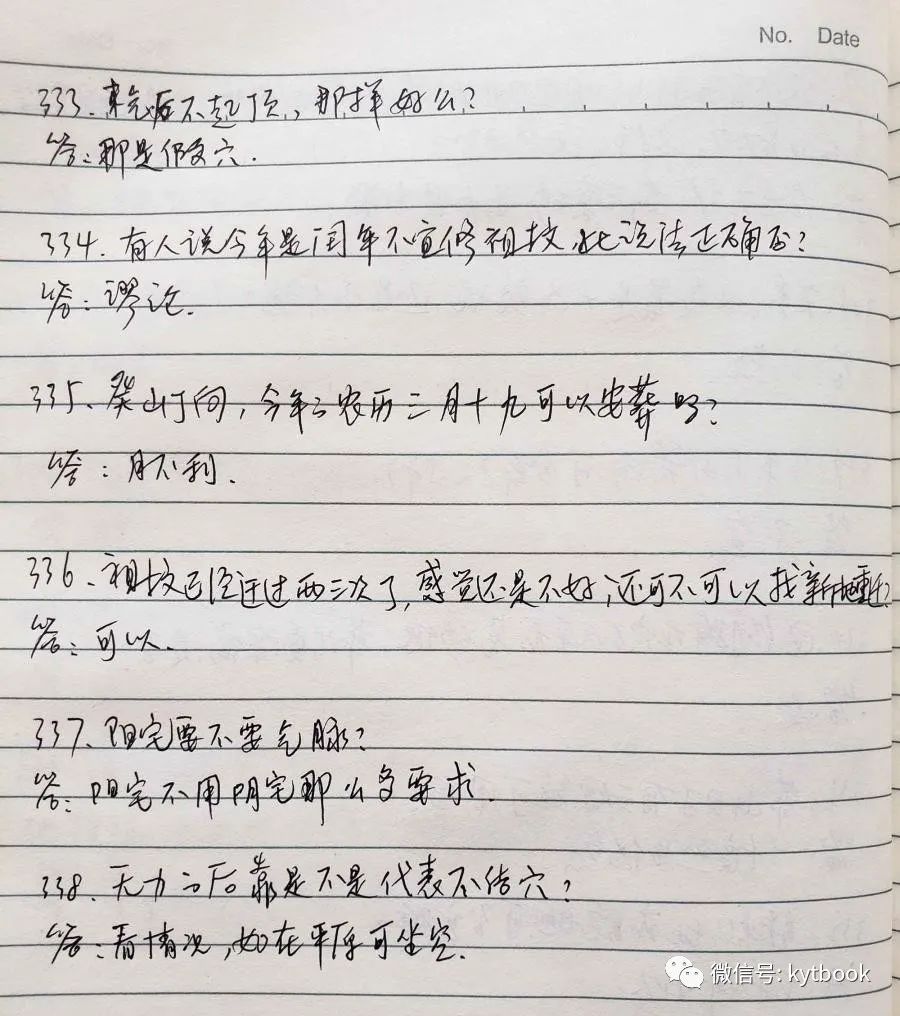 No. Date
333. 束气后不起顶, 那样好么?
答: 那是假穴.
334. 有人说今年是闰年不宜修祖坟, 此说法正确否?
答: 谬论.
335. 癸山丁向, 今年农历三月十九可以安葬吗?
答: 月不利.
336. 祖坟已经迁过两三次了, 感觉还是不好, 还可不可以找新地重迁?
答: 可以.
337. 阳宅要不要气脉?
答: 阳宅不用阴宅那么多要求.
338. 无力的后靠是不是代表不结穴?
答: 看情况, 如在平洋可坐空.
微信号: kytbook